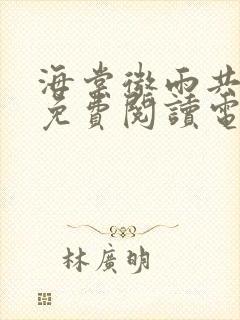 海棠微雨共
免費閱讀電
林廣明